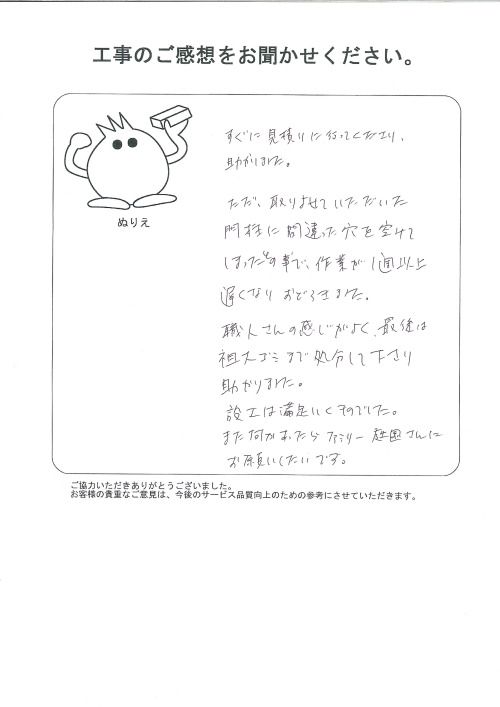 工事のご感想をお聞かせください。
ぬりえ
すぐに見積りに行ってくださり、
助かりました。
ただ、取りよせていただいた
門柱に間違った穴を空けて
しまったとの事で、作業が1週以上
遅くなりおどろきました。
職人さんの感じがよく、最後は
粗大ゴミまで処分して下さり
助かりました。
設工は満足いくものでした。
また何かあったらファミリー庭園さんに
お願いしたいです。
ご協力いただきありがとうございました。
お客様の貴重なご意見は、今後のサービス品質向上のための参考にさせていただきます。